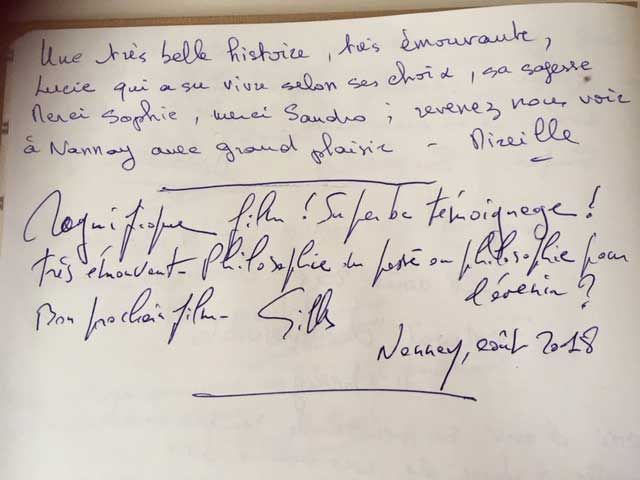 Une très belle histoire, très émouvante,
Lucie qui a su vivre selon ses choix, sa sagesse
Merci Sophie, merci Sandro ; revenez nous voir
à Nannay avec grand plaisir - Mireille
Magnifique film ! Superbe témoignage !
très émouvant - Philosophie du passé ou philosophie pour
l'évenir ?
Bon prochain film - Gilles
Nannay, août 2018